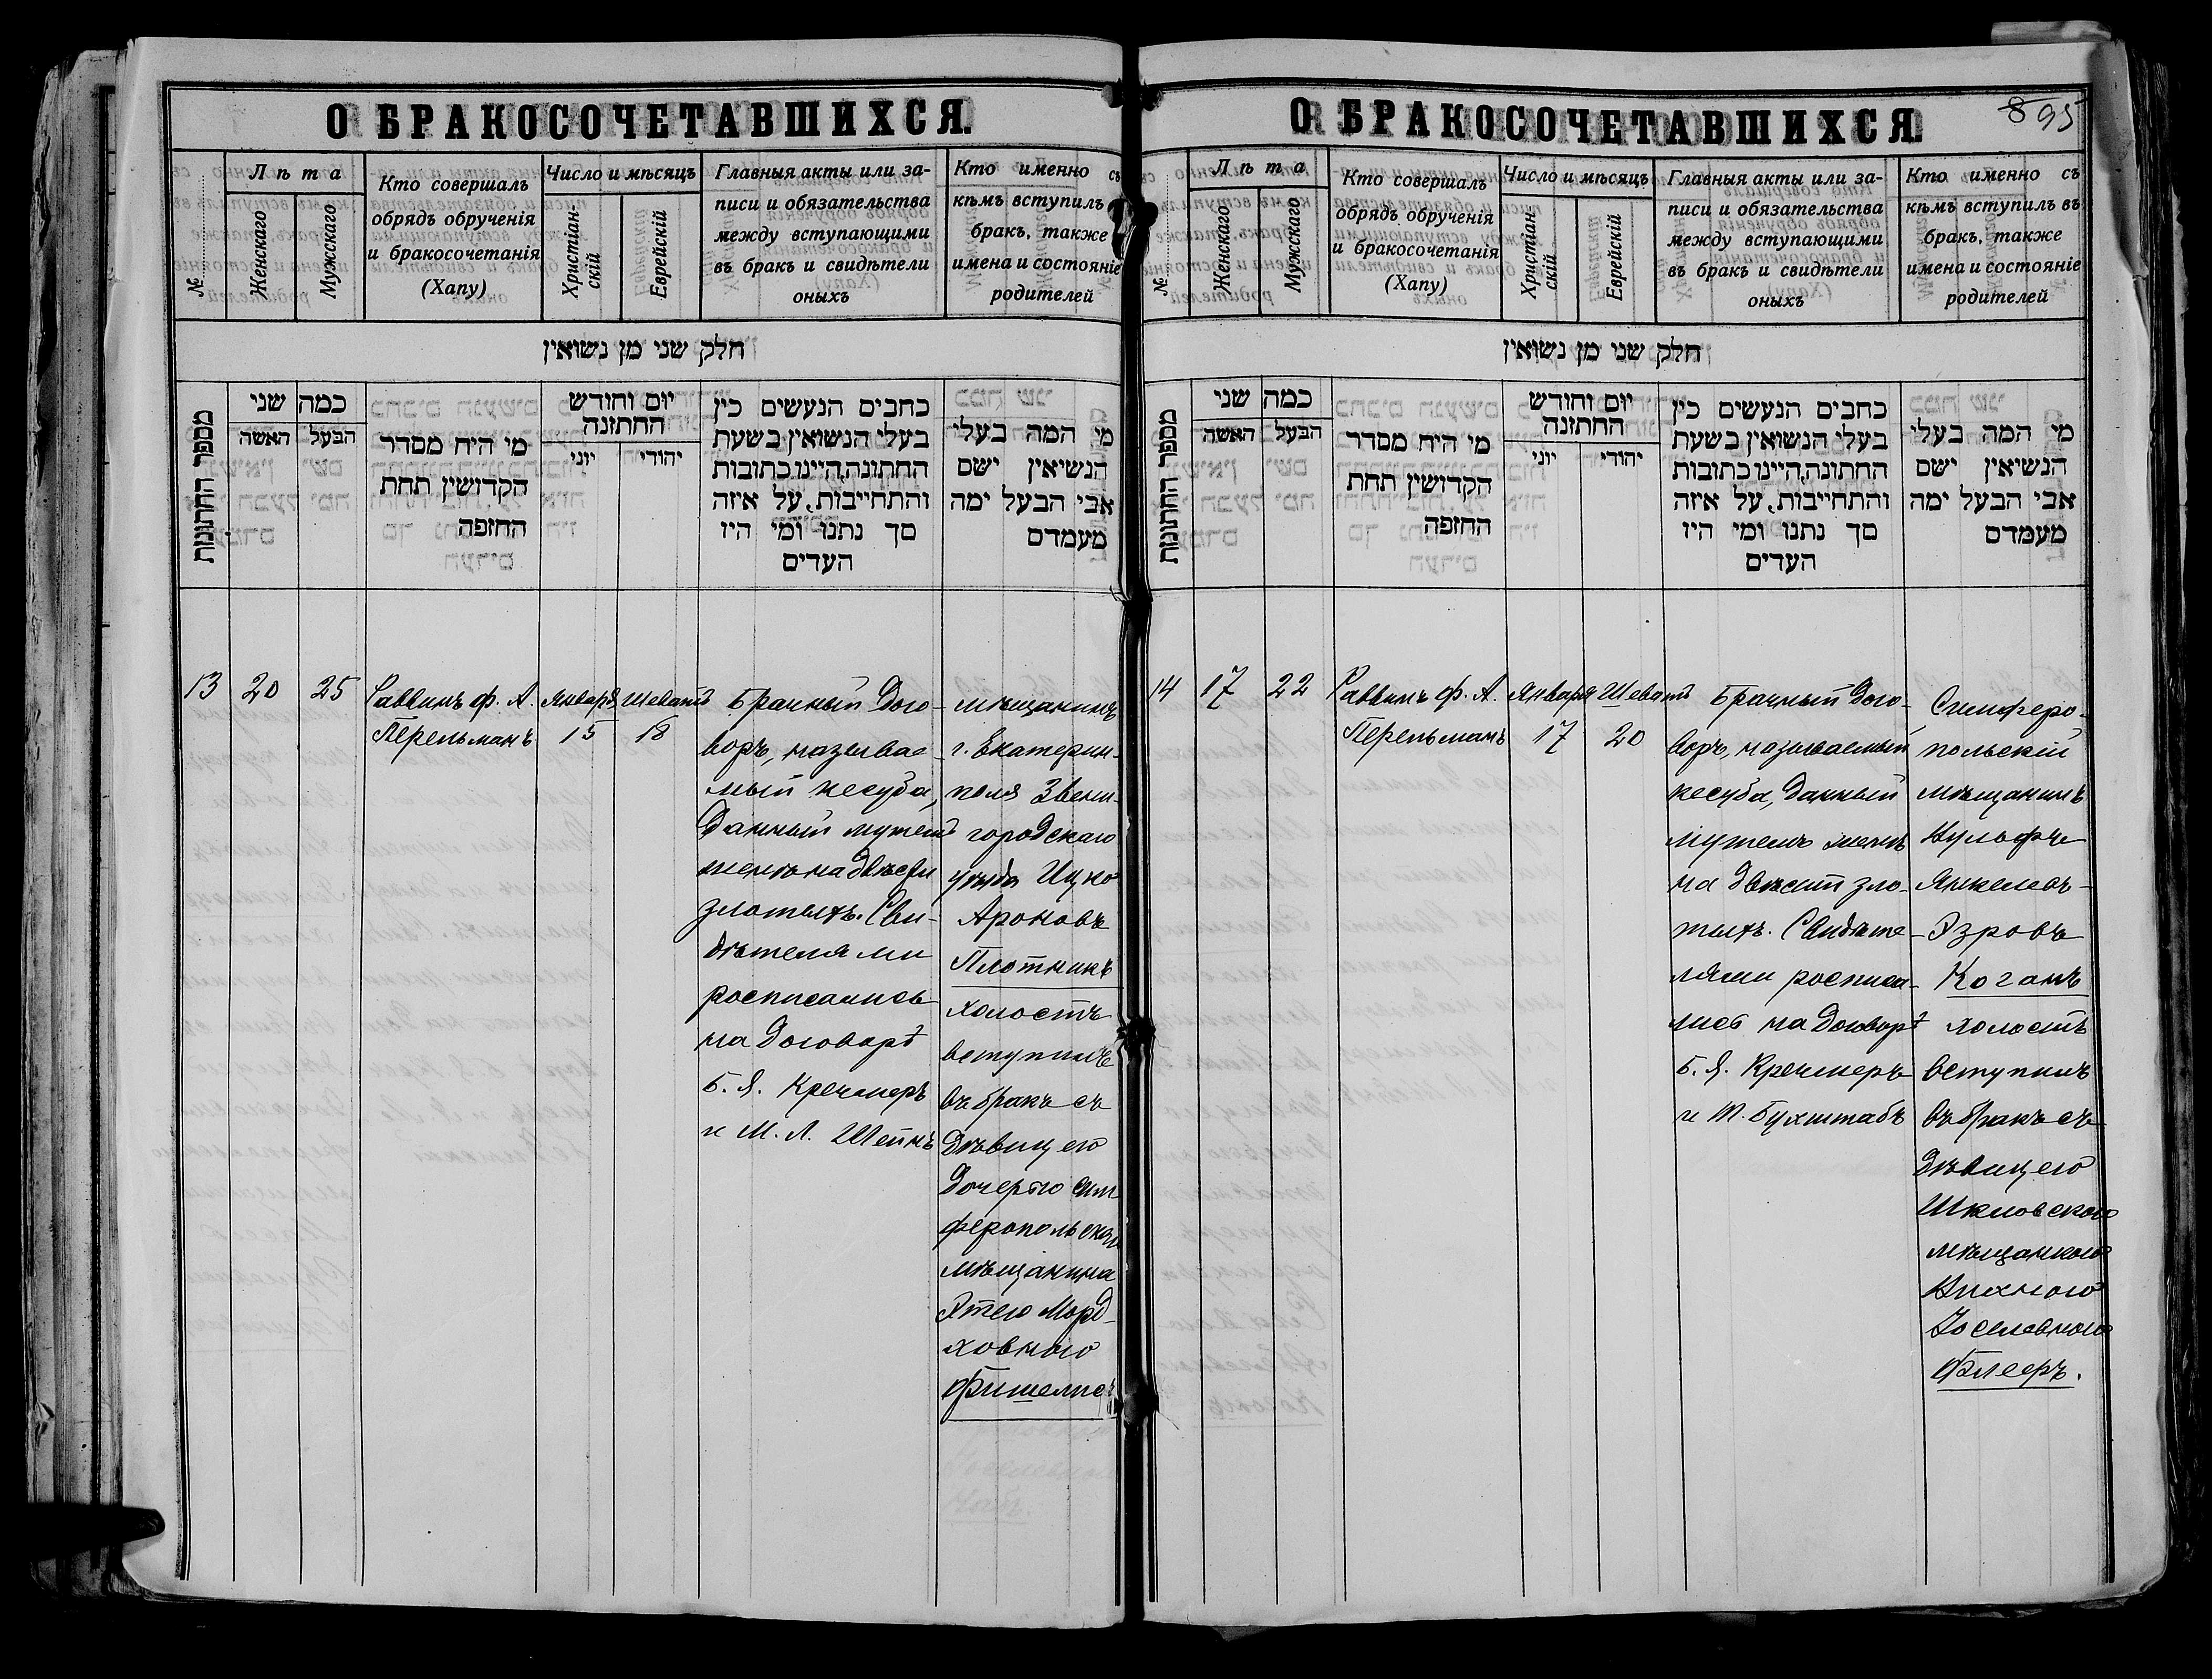 О БРАКОСОЧЕТАВШИХСЯ.
№
Лѣта
Женскаго
Мужскаго
Кто совершалъ
обрядъ обрученія
и бракосочетанія
(Хапу)
Число и мѣсяцъ
Христіан-
скій
Еврейскій
Главныя акты или за-
писи и обязательства
между вступающими
въ бракъ и свидѣтели
оныхъ
Кто именно съ
кѣмъ вступилъ
бракъ, также
имена и состояніе
родителей
חלק שני מן נשואין
מספר החתונות
כמה שני
האשה
הבעל
מי היח מסדר
הקדושין תחת
החזפה
יום וחודש
החתזנה
יוני
יהודי
כחבים הנעשים כין
בעלי הנשואין בשעת
החתונה,היינו כתובות
והתחייבות, על איזה
סך נתנו ומי היז
העדים
מי המה בעלי
הנשיאין ישם
אבי הבעל ימה
מעמדם
13
20
25
Раввинъ Ф. А.
Перельманъ
Января
15
Шеватъ
18
Брачный дого-
воръ, называе-
мый кесуба,
данный мужемъ
женѣ на двѣсти
злотыхъ. Сви-
дѣтелями
росписались
на договорѣ
Б. Я. Кречмеръ
и М. Л. Штейнъ
мѣщанинъ
г. Екатерин-
поля Звени-
городскаго
уѣзда Ицко
Ароновъ
Плотникъ
холостъ
вступилъ
въ бракъ съ
дѣвицею
дочерью сим
феропольскаго
мѣщанина
Этею Морд-
ховною
О БРАКОСОЧЕТАВШИХСЯ.
8 95
№
Лѣта
Женскаго
Мужскаго
Кто совершалъ
обрядъ обрученія
и бракосочетанія
(Хапу)
Число и мѣсяцъ
Христіан-
скій
Еврейскій
Главныя акты или за-
писи и обязательства
между вступающими
въ бракъ и свидѣтели
оныхъ
Кто именно съ
кѣмъ вступилъ въ
бракъ, также
имена и состояніе
родителей
חלק שני מן נשואין
מספר החתונות
כמה שני
האשה
הבעל
מי היח מסדר
הקדושין תחת
החזפה
יום וחודש
החתזנה
יוני
יהודי
כחבים הנעשים כין
בעלי הנשואין בשעת
החתונה,היינו כתובות
והתחייבות, על איזה
סך נתנו ומי היז
העדים
מי המה בעלי
הנשיאין ישם
אבי הבעל ימה
מעמדם
14
17
22
Раввинъ Ф. А.
Перельманъ
Января
17
Шеватъ
20
Брачный дого-
воръ, называемый
кесуба, данный
мужемъ женѣ
на двѣсти зло-
тыхъ. Свидѣте-
лями росписа-
лись на договорѣ
Б. Я. Кречмеръ
и Т. Бухштабъ
Симферо-
польскій
мѣщанинъ
Вульфъ
Янкелевъ-
Эзровъ
Коганъ
холостъ
вступилъ
въ бракъ съ
дѣвицею
Шкловскою
мѣщанкою
Іоселевною
Флееръ.